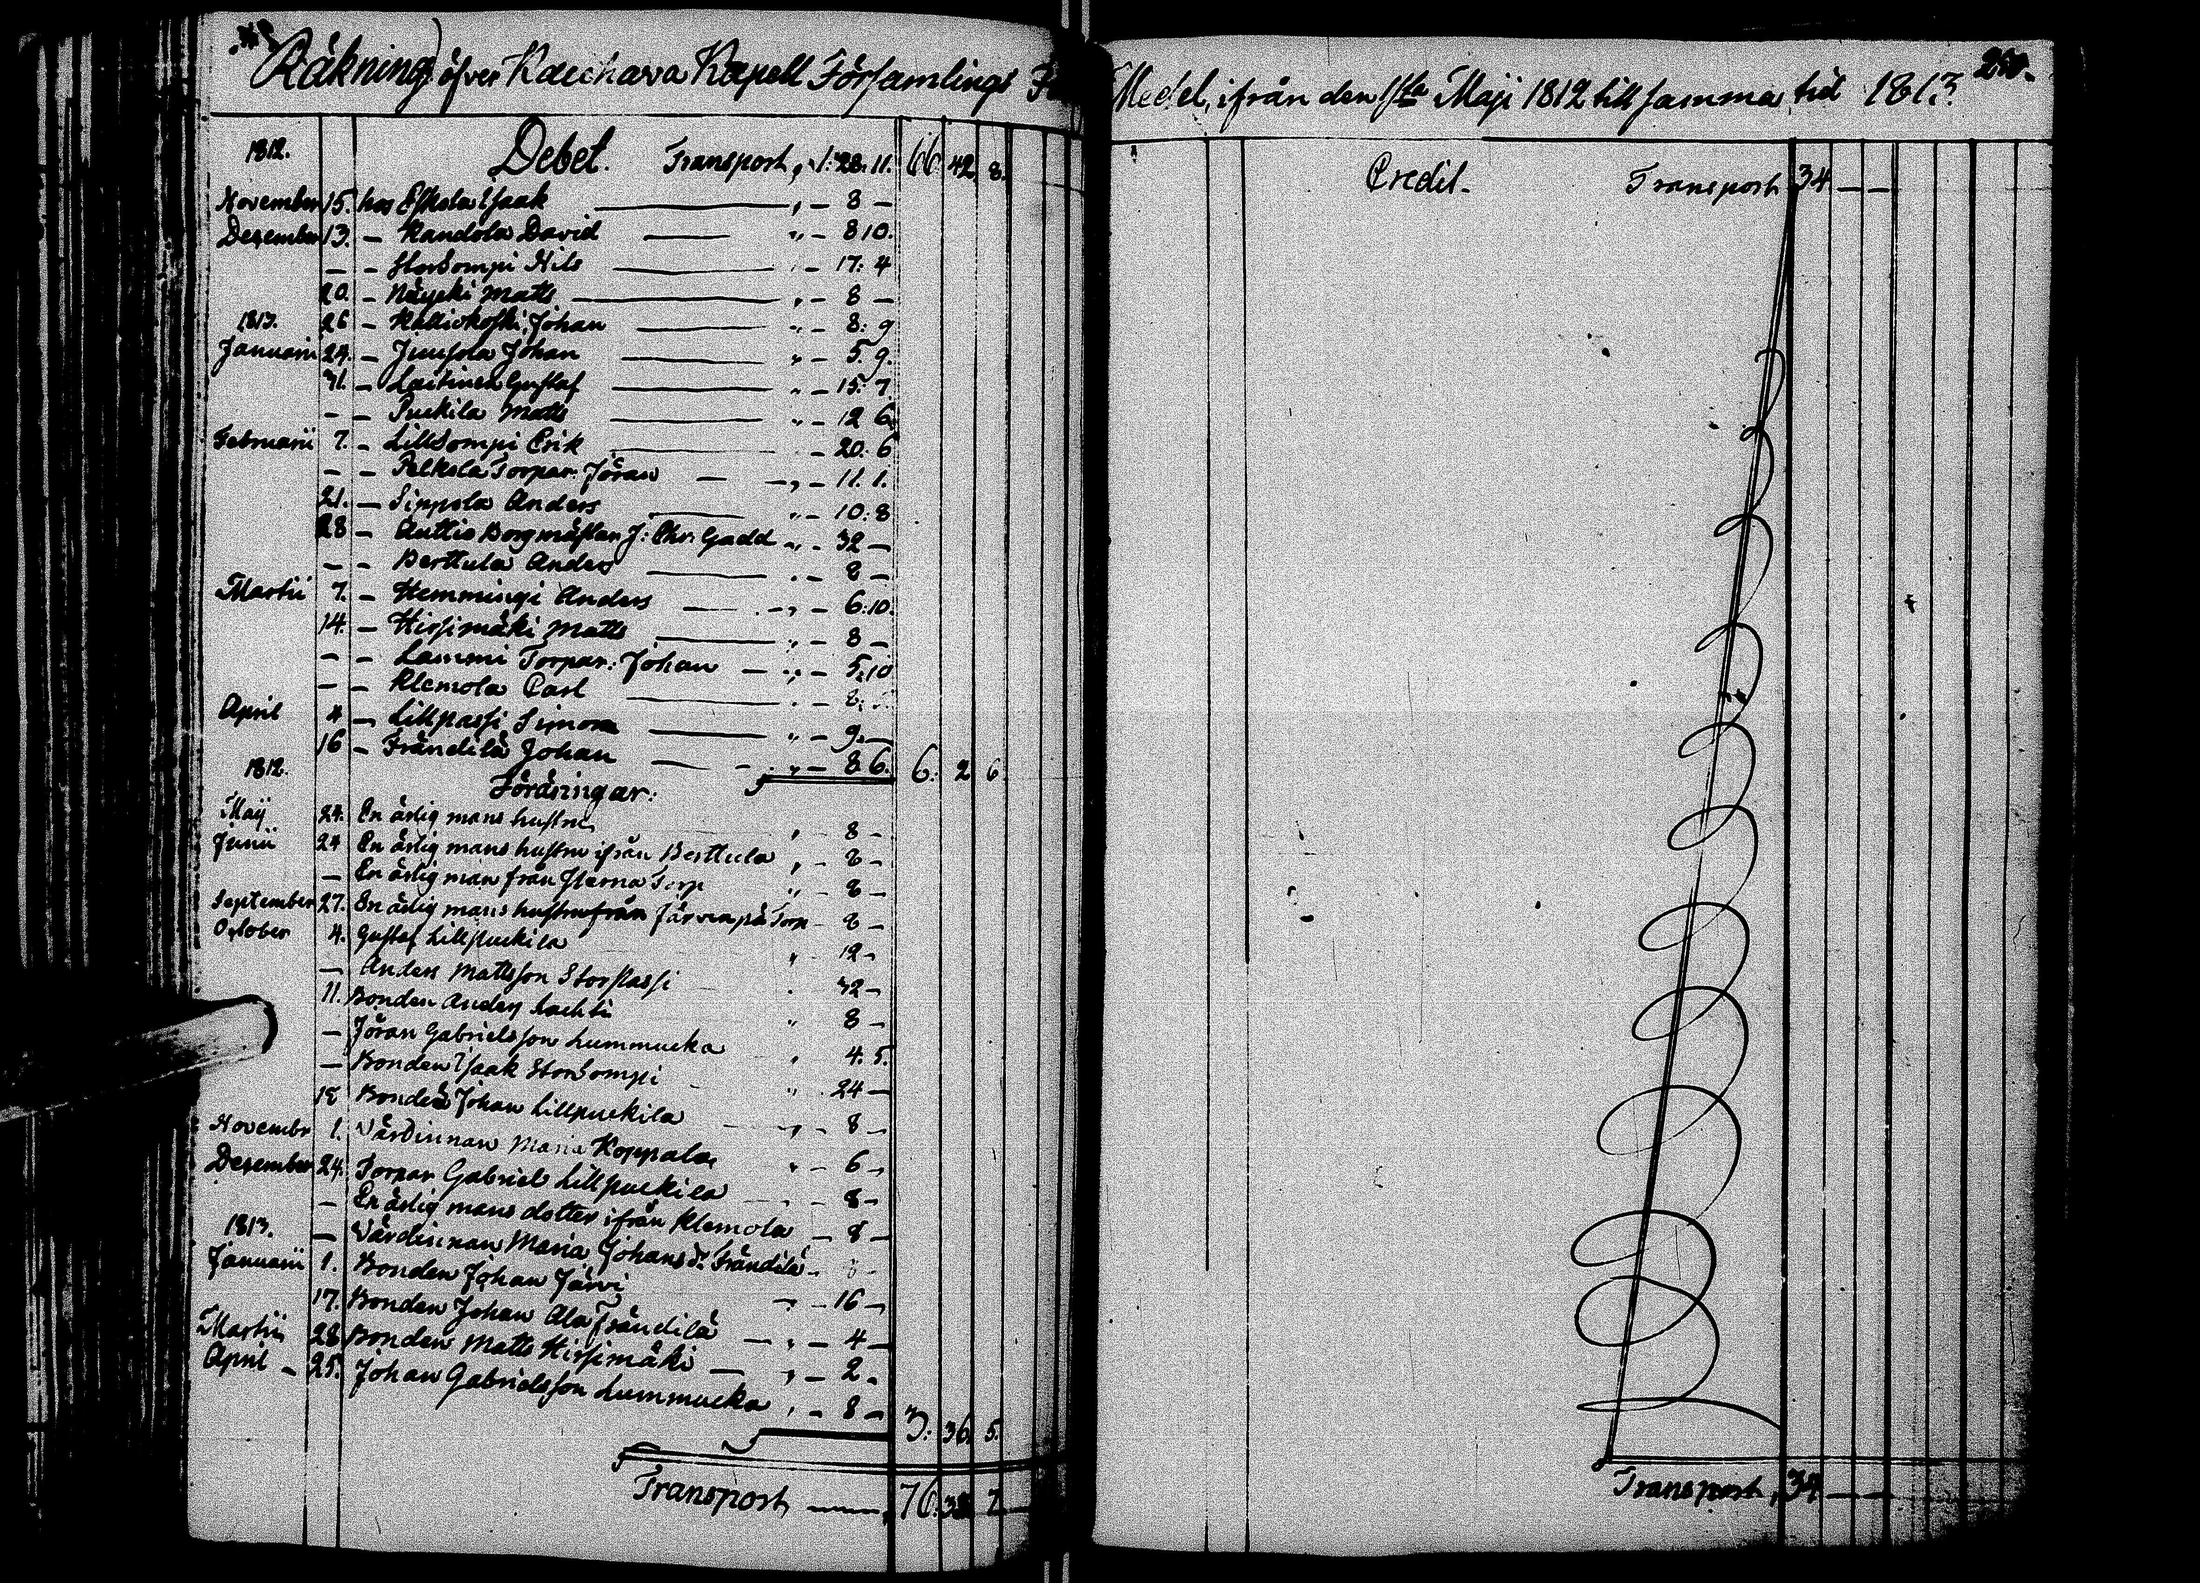 Räkning öfver Kauchava Kapell Församlings
1812. Debet. Transport „ 1: 28. 11. 66. 42. 8.
November 15. hos Eskola Isaak „ — 8 —
Dezember 13. — Kandola David „ — 8 10.
— — Storsompi Nils „ — 17: 4
20. — Näycki Matts „ — 8 —
1813. 26 — Kalliokoski Johan „ — 8: 9
Januarii 24. — Juusola Johan „ — 5. 9.
31. — Laitinen Gustaf „ — 15: 7
— — Puckila Matts — 12 6.
Februarii 7. — Lillsompi Erik — 20: 6
— — Pelkola Torpar: Jöran — „ — 11. 1.
21. — Sippola Anders „ — 10: 8
28 — Anttio Borgmästar. J: Chr: Gadd „ — 32 —
— — Berttula Anders — 8 —
Martii 7. — Hemmingi Anders „ — 6: 10.
14. — Hirsimäki Matts „ — 8 —
— — Lammi Torpar: Johan — „ — 5. 10
— — Klemola Carl — 8:
April 4 — Lillpassi Simon „ — 9. —
16 — Frändilä Johan „ — 8 6. 6: 2 6
1812. Förä‌ringar:
Maji 24. En ärlig mans hustru „ — 8 —
Junii 24 En ärlig mans hustru ifrån Berttula „ — 8 —
— En ärlig man från Torp „ 8 —
September 27. En ärlig mans hustru från Järvenpä Torp — 8 —
October 4. Gustaf Lillpuckila „ 12 —
— Anders Mattsson Storpassi 32 —
11. Bonden Anders Lachti „ 8 —
— Jöran Gabrielsson Lummucka „ 4. 5.
— Bonden Isaak Storsompi „ 24 —
18 Bonden Johan Lillpuckila „ 8 —
Novembr 1. Värdinnan Maria Koppala „ — 6 —
Dezember 24. Torpar Gabriel Lillpuckila — 8 —
— En ärlig mans dotter ifrån Klemola — 8 —
1813. — Värdinnan Maria Johansdr. Frändilä — 8 —
Januarii 1. Bonden Johan Järvi — 16 —
17. Bonden Johan Ala Frändilä — „ — 4 —
Martii 28 Bonden Matts Hirsimäki — „ — 2 —
April — 25. Johan Gabrielsson Lummucka „ — 8 — 3: 36. 5.
Transport „ 76. 38. 7
Medel, ifrån den 1sta Maji 1812 till samma tid 1813.
Credit. Transport 34 — —
Transport, 34 — —